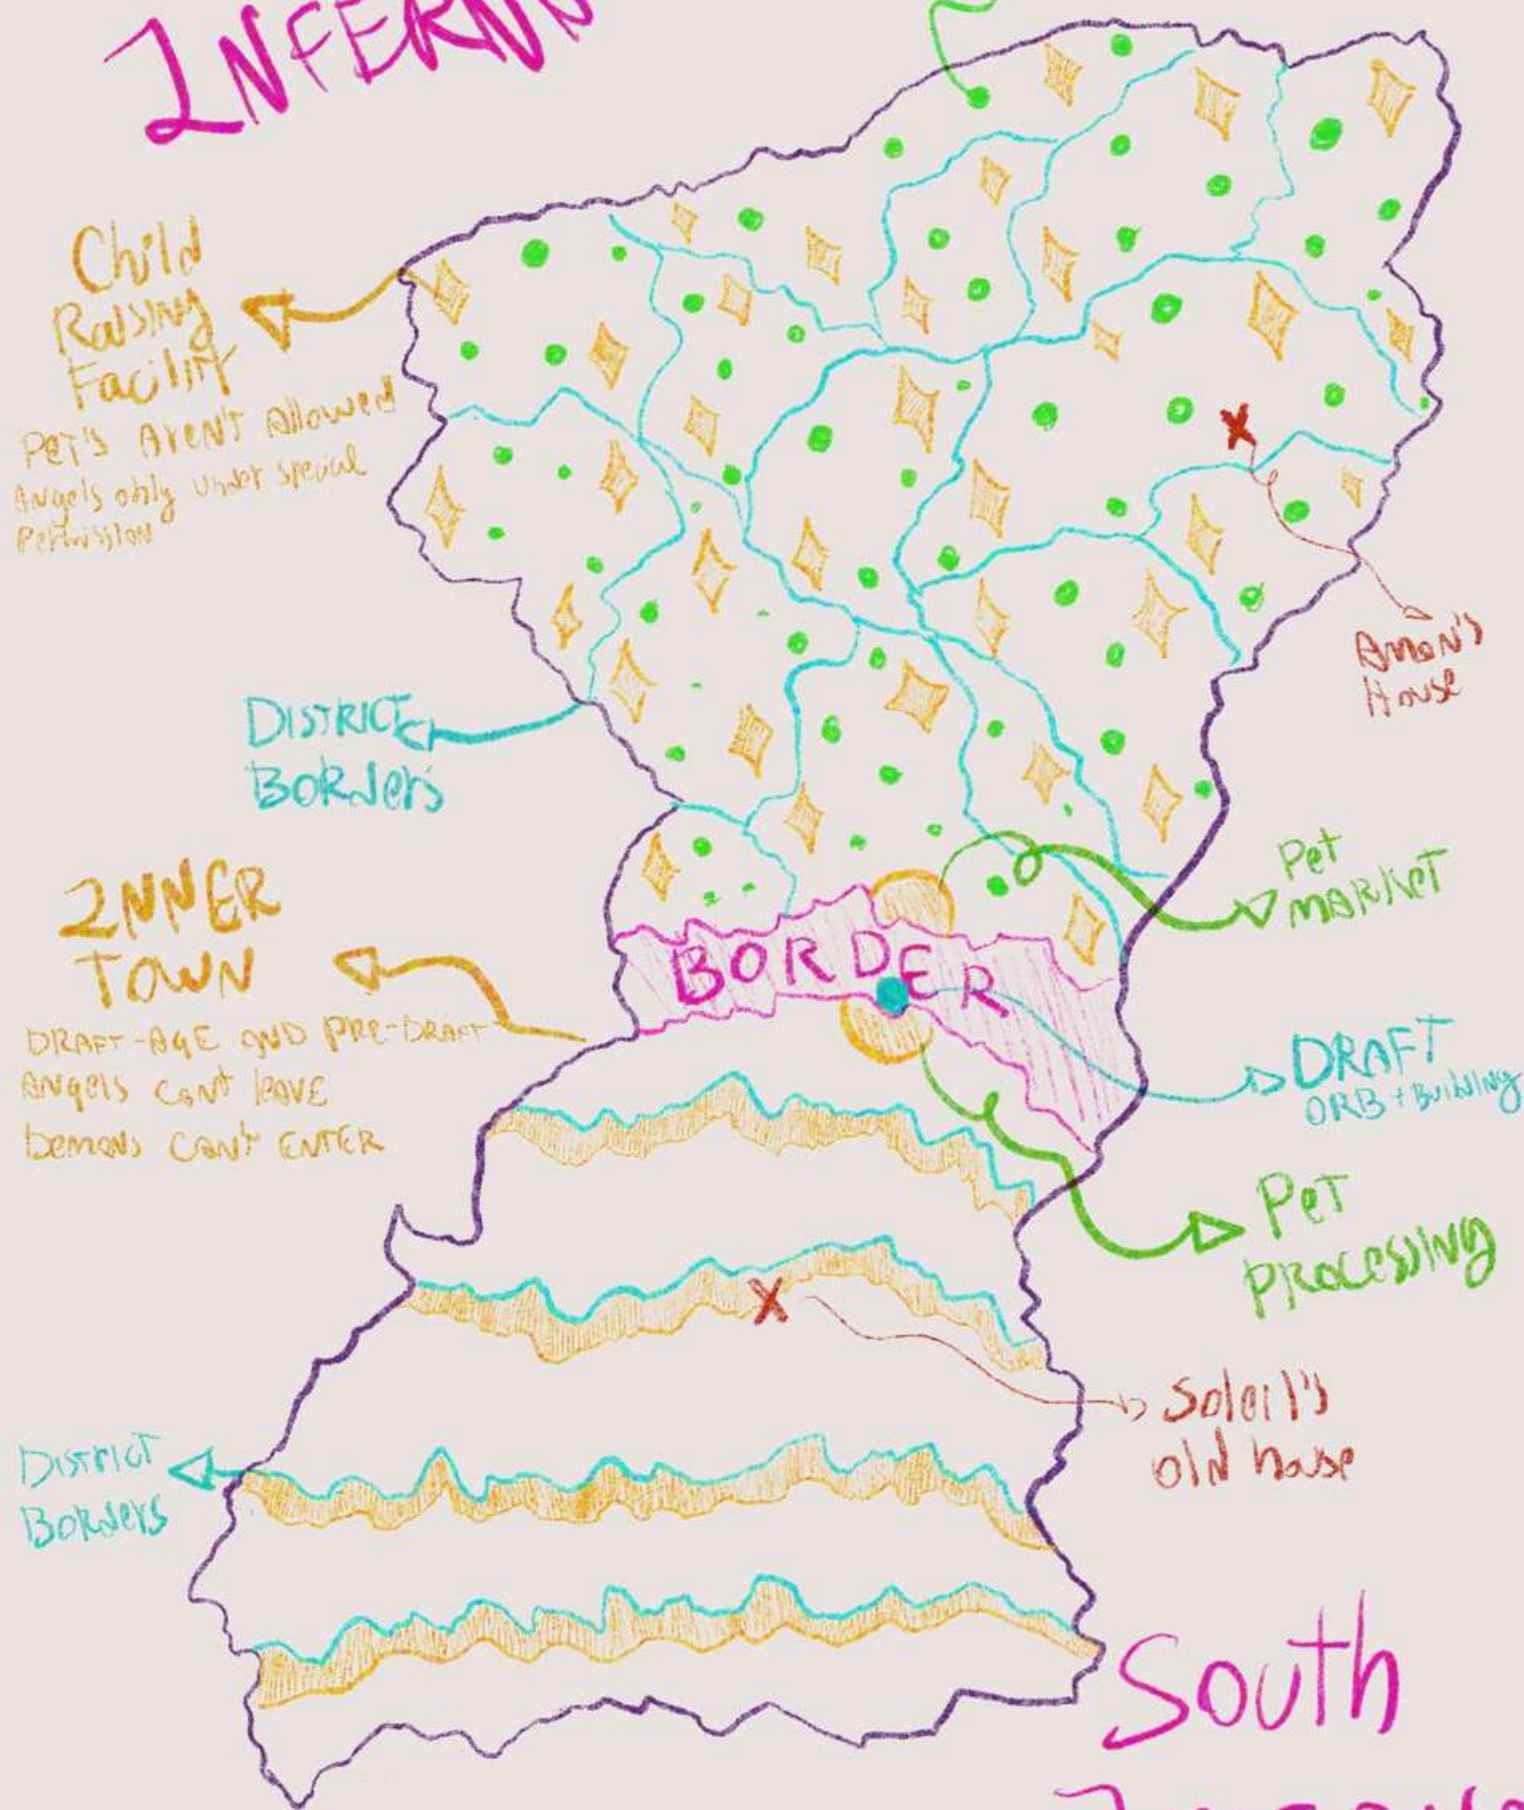 INFERNO
Child
Raising
Facility
Pet's Aren't Allowed
Angels only Under special
Permission
Amon's
House
DISTRICT
BORders
Pet
MARKET
INNER
TOWN
BORDER
DRAFT-AGE AND PRE-DRAFT
ANgels CAN'T leAVE
Demons CAN'T ENTER
DRAFT
ORB + Building
Pet
PROCESSING
Soleil's
Old house
District
Borders
South